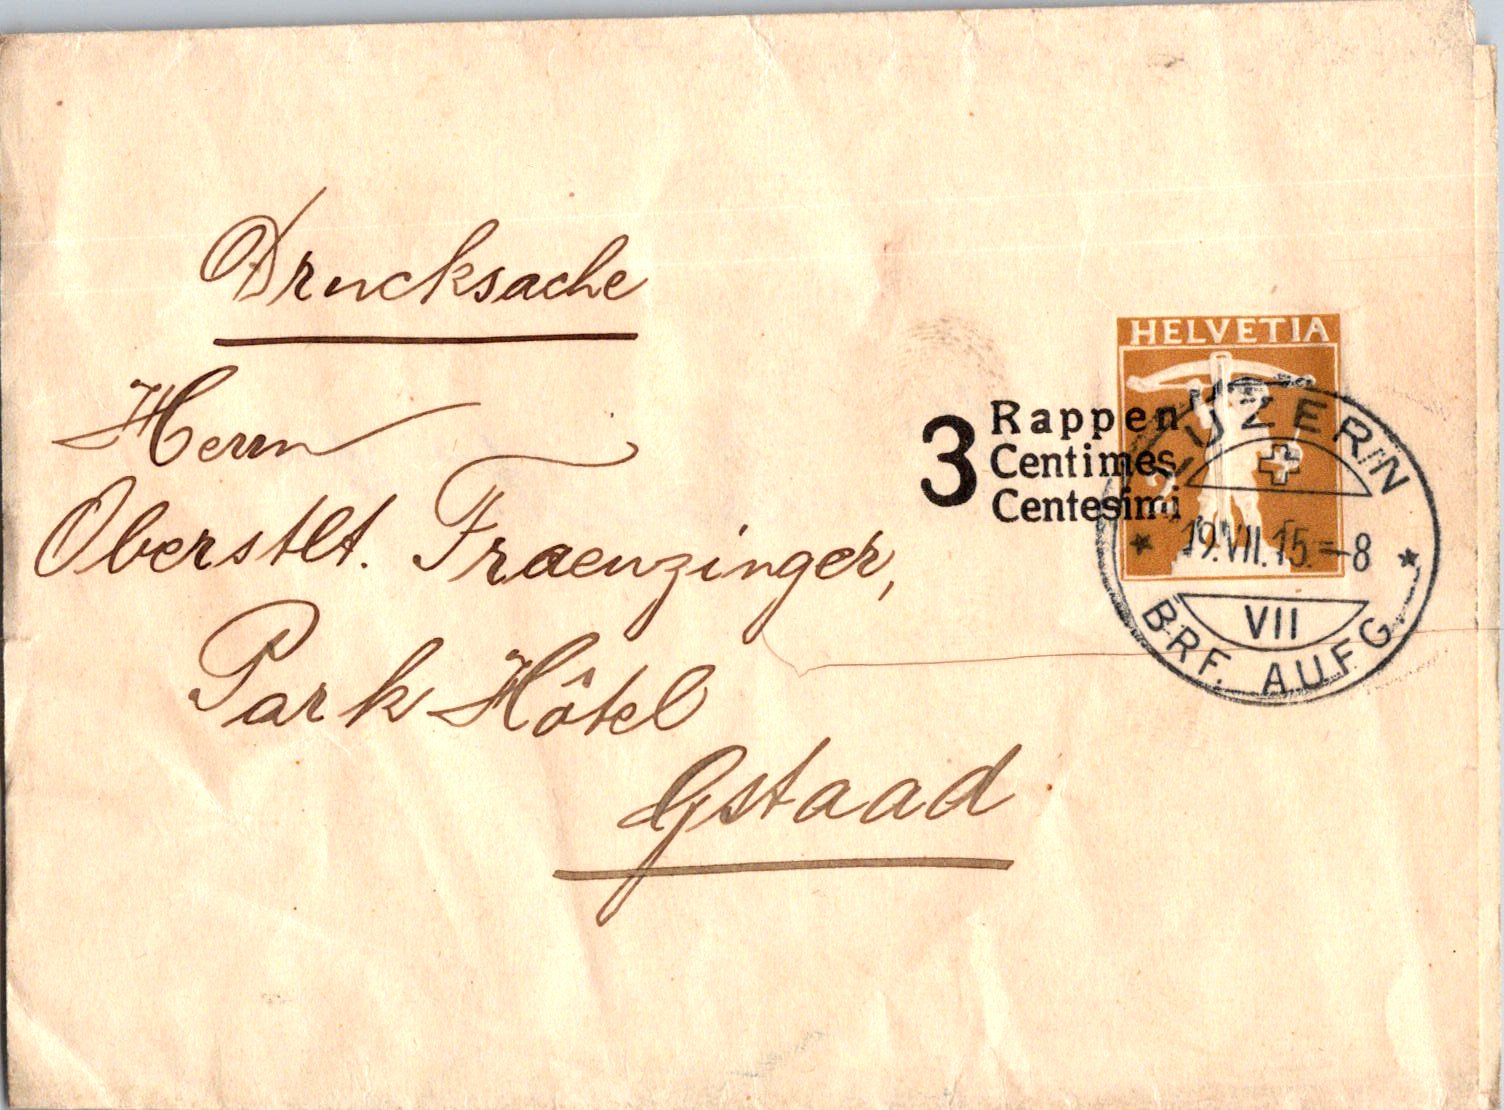 Drucksache
HELVETIA
3 Rappen
Centimes
Centesimi
LUZERN
19.VII.15.–8
VII
BRF. AUFG.
Herrn
Oberstlt. Fraenzinger,
Park Hôtel
Gstaad